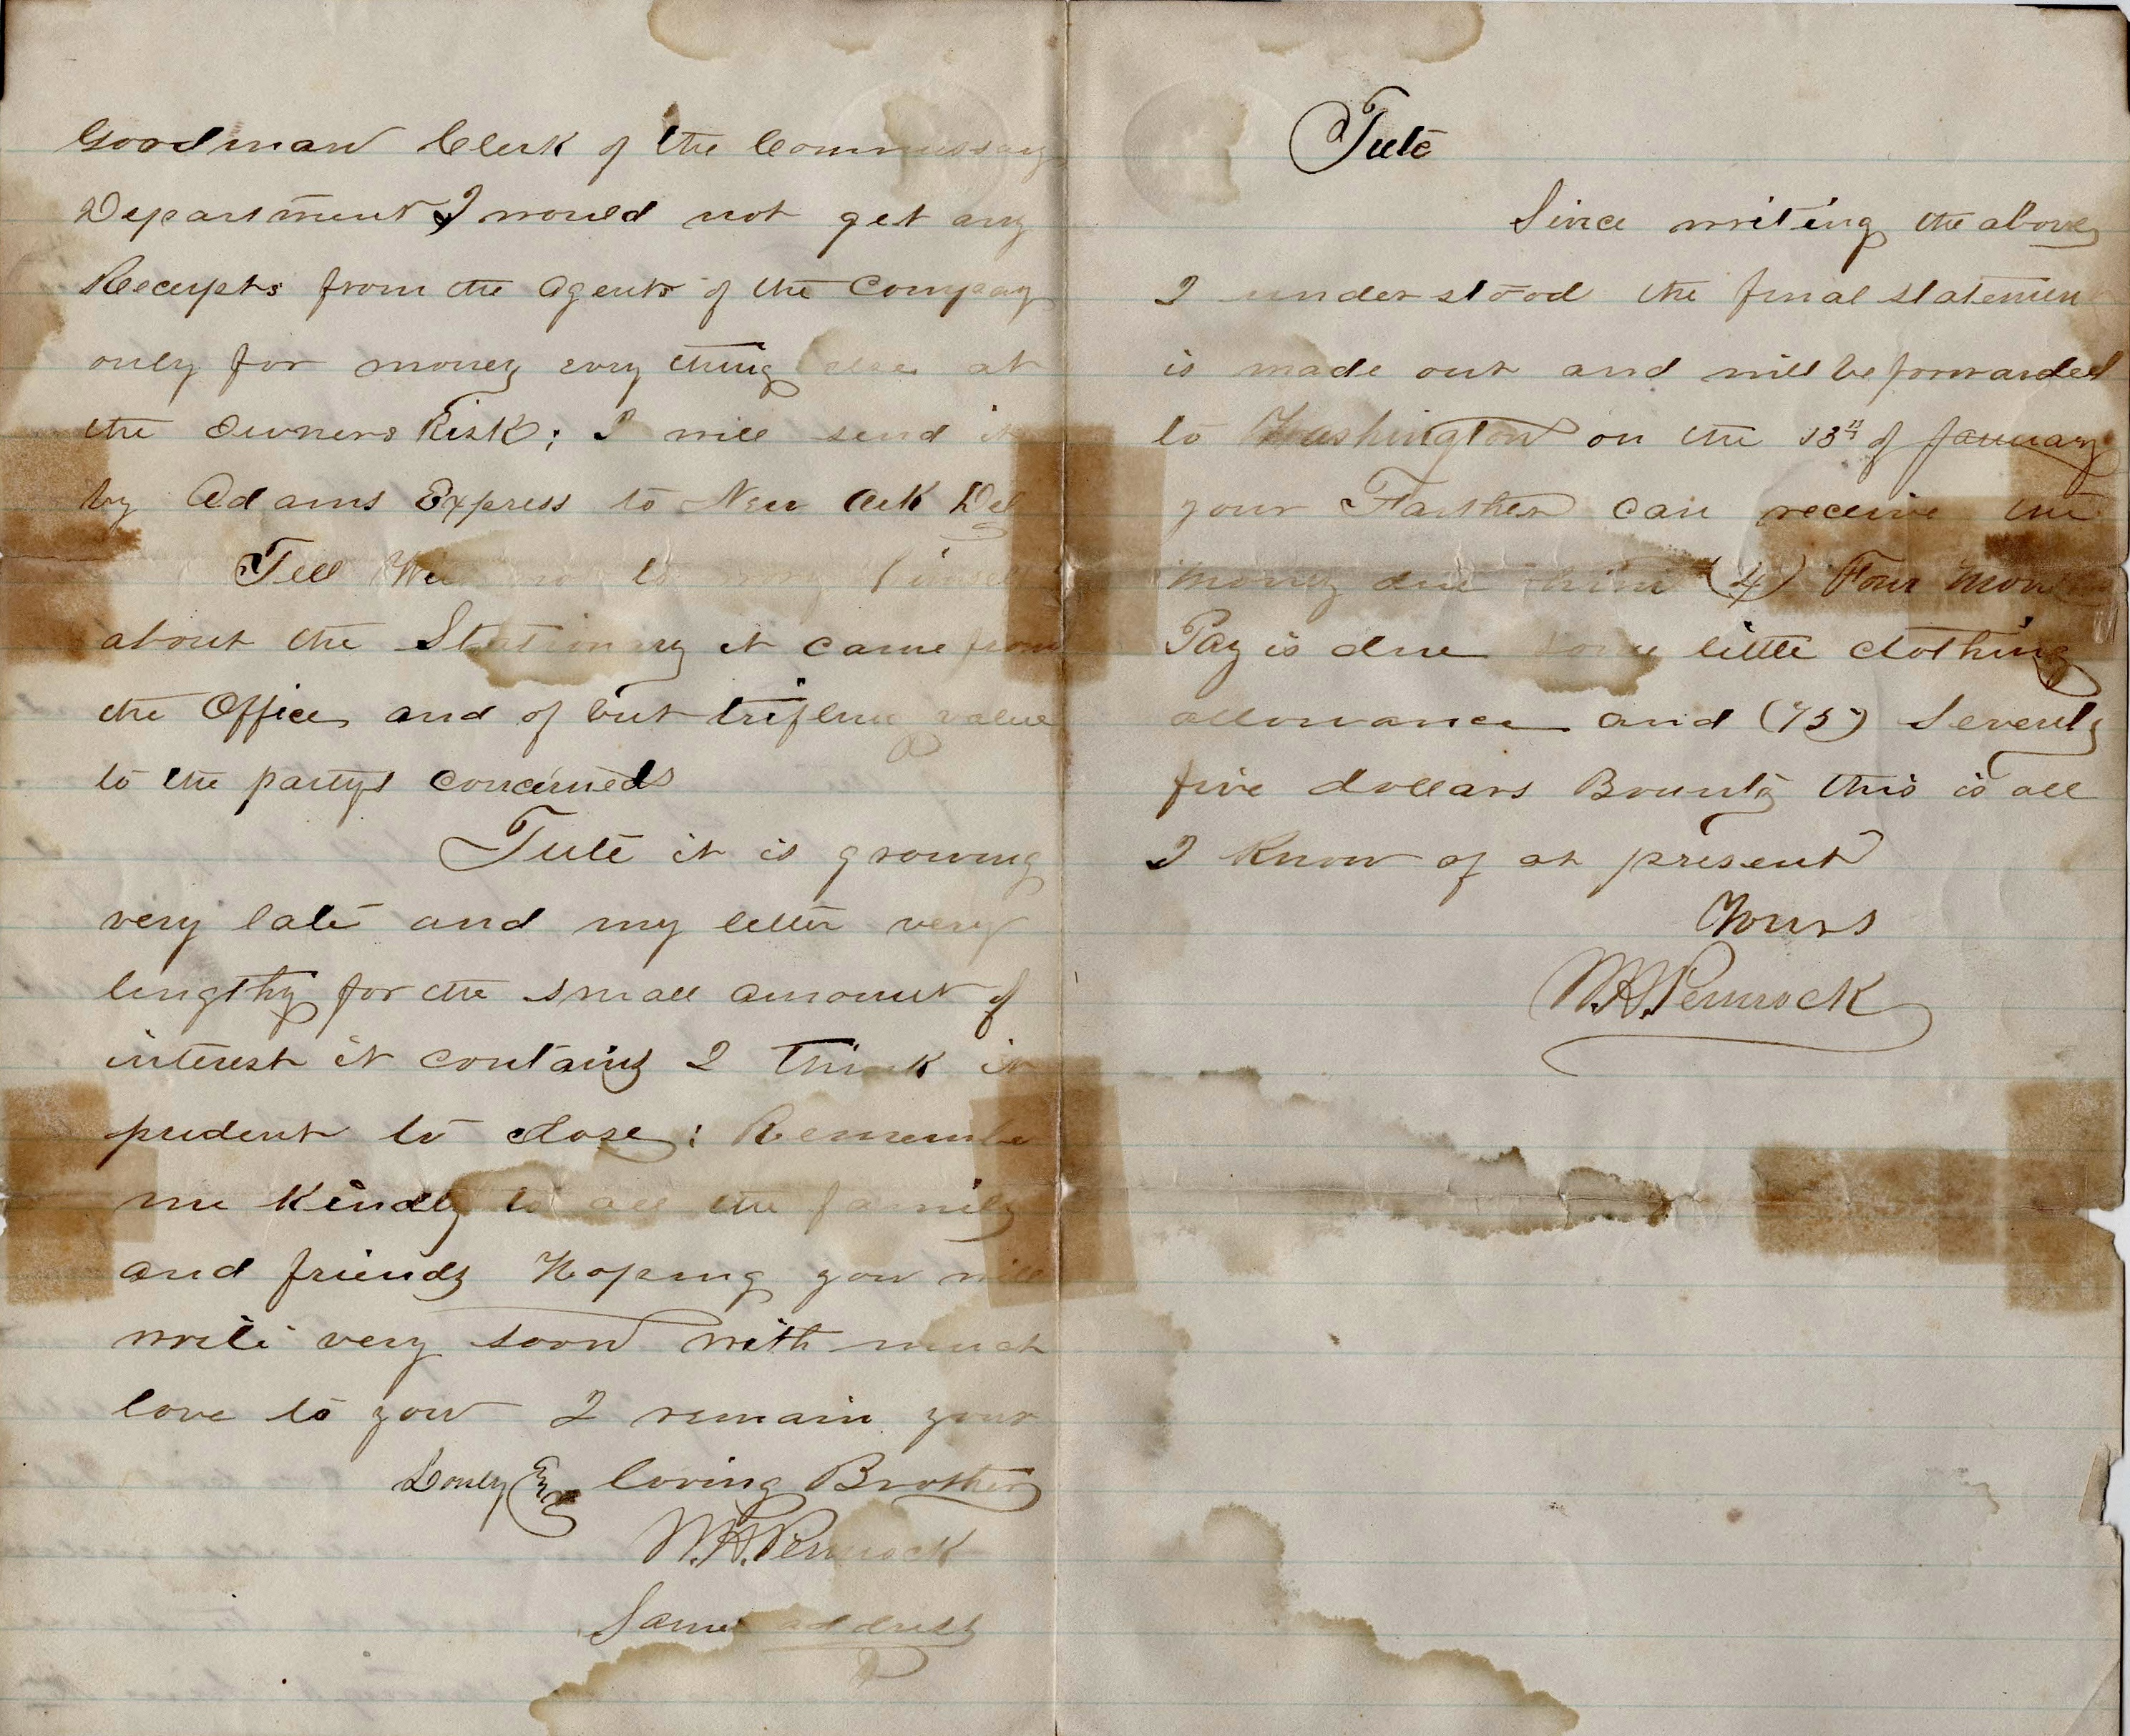 Goodman Clerk of the Commissary
Department I would not get any
Receipts from the Agents of the Company
only for money evry thing else at
the Owners Risk; I will send it
by Adams Express to New Ark Del
Tell Will not to
about the Stationary it came from
the Office and of but trifling value
to the partys concerned
Tute it is growing
very late and my letter very
lengthy for the small amount of
interest it contains I think it
prudent to close: Remember
me Kindly to all the family
and friends Hoping you will
write very soon with much
love to you I remain your
loving Brother
W.H. Pennock
Same address
Tute
Since writing the above
I understood the final statemen
is made out and will be forwarded
to Washington on the 13th of January
your Farther can receive the
money due him (4) Four Months
Pay is due some little clothing
allowance and (75) Seventy
five dollars Bounty this is all
I Know of at present
Yours
W.H. Pennock